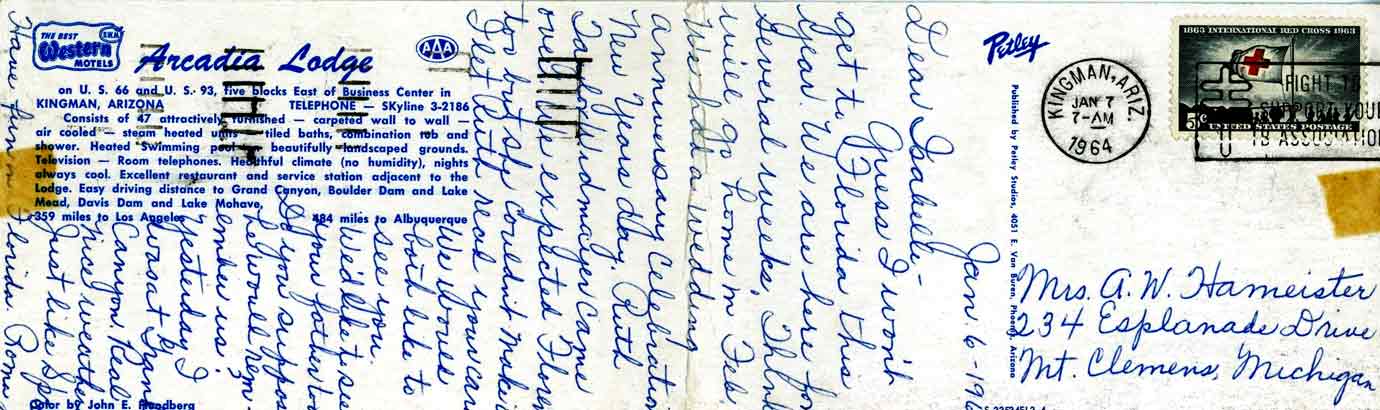 THE BEST
Western
MOTELS
Arcadia Lodge
AAA
on U. S. 66 and U. S. 93, five blocks East of Business Center in
KINGMAN, ARIZONA TELEPHONE — SKyline 3-2186
Consists of 47 attractively furnished — carpeted wall to wall
air cooled — steam heated units — tiled baths, combination tub and
shower. Heated Swimming pool — beautifully landscaped grounds.
Television — Room telephones. Healthful climate (no humidity), nights
always cool. Excellent restaurant and service station adjacent to the
Lodge. Easy driving distance to Grand Canyon, Boulder Dam and Lake
Mead, Davis Dam and Lake Mohave.
359 miles to Los Angeles 484 miles to Albuquerque
Color by John E.
Jan. 6-196
Dear Isabelle-
Guess I won't
get to Florida this
year. We are here for
several weeks,
will go home in Feb.
We had a wedding
anniversary celebration
New Years day. Ruth
Taylor Widmayer came
over. We expected
too but she couldn't make it
I let Ruth read your card
We would
both like to
see you.
We'd like to see
your father too
Do you suppose
he would rem-
ember us?
yesterday I
was at Grand
Canyon. Real
nice weather
Just like
Have fun in Florida.
Petley
Published by Petley Studios, 4051 E. Van Buren, Phoenix, Arizona
KINGMAN, ARIZ.
JAN 7
7-AM
1964
1863 INTERNATIONAL RED CROSS 1963
5c UNITED STATES POSTAGE
FIGHT TB
SUPPORT YOUR
TB ASSOCIATION
Mrs. A. W. Hameister
234 Esplanade Drive
Mt. Clemens, Michigan